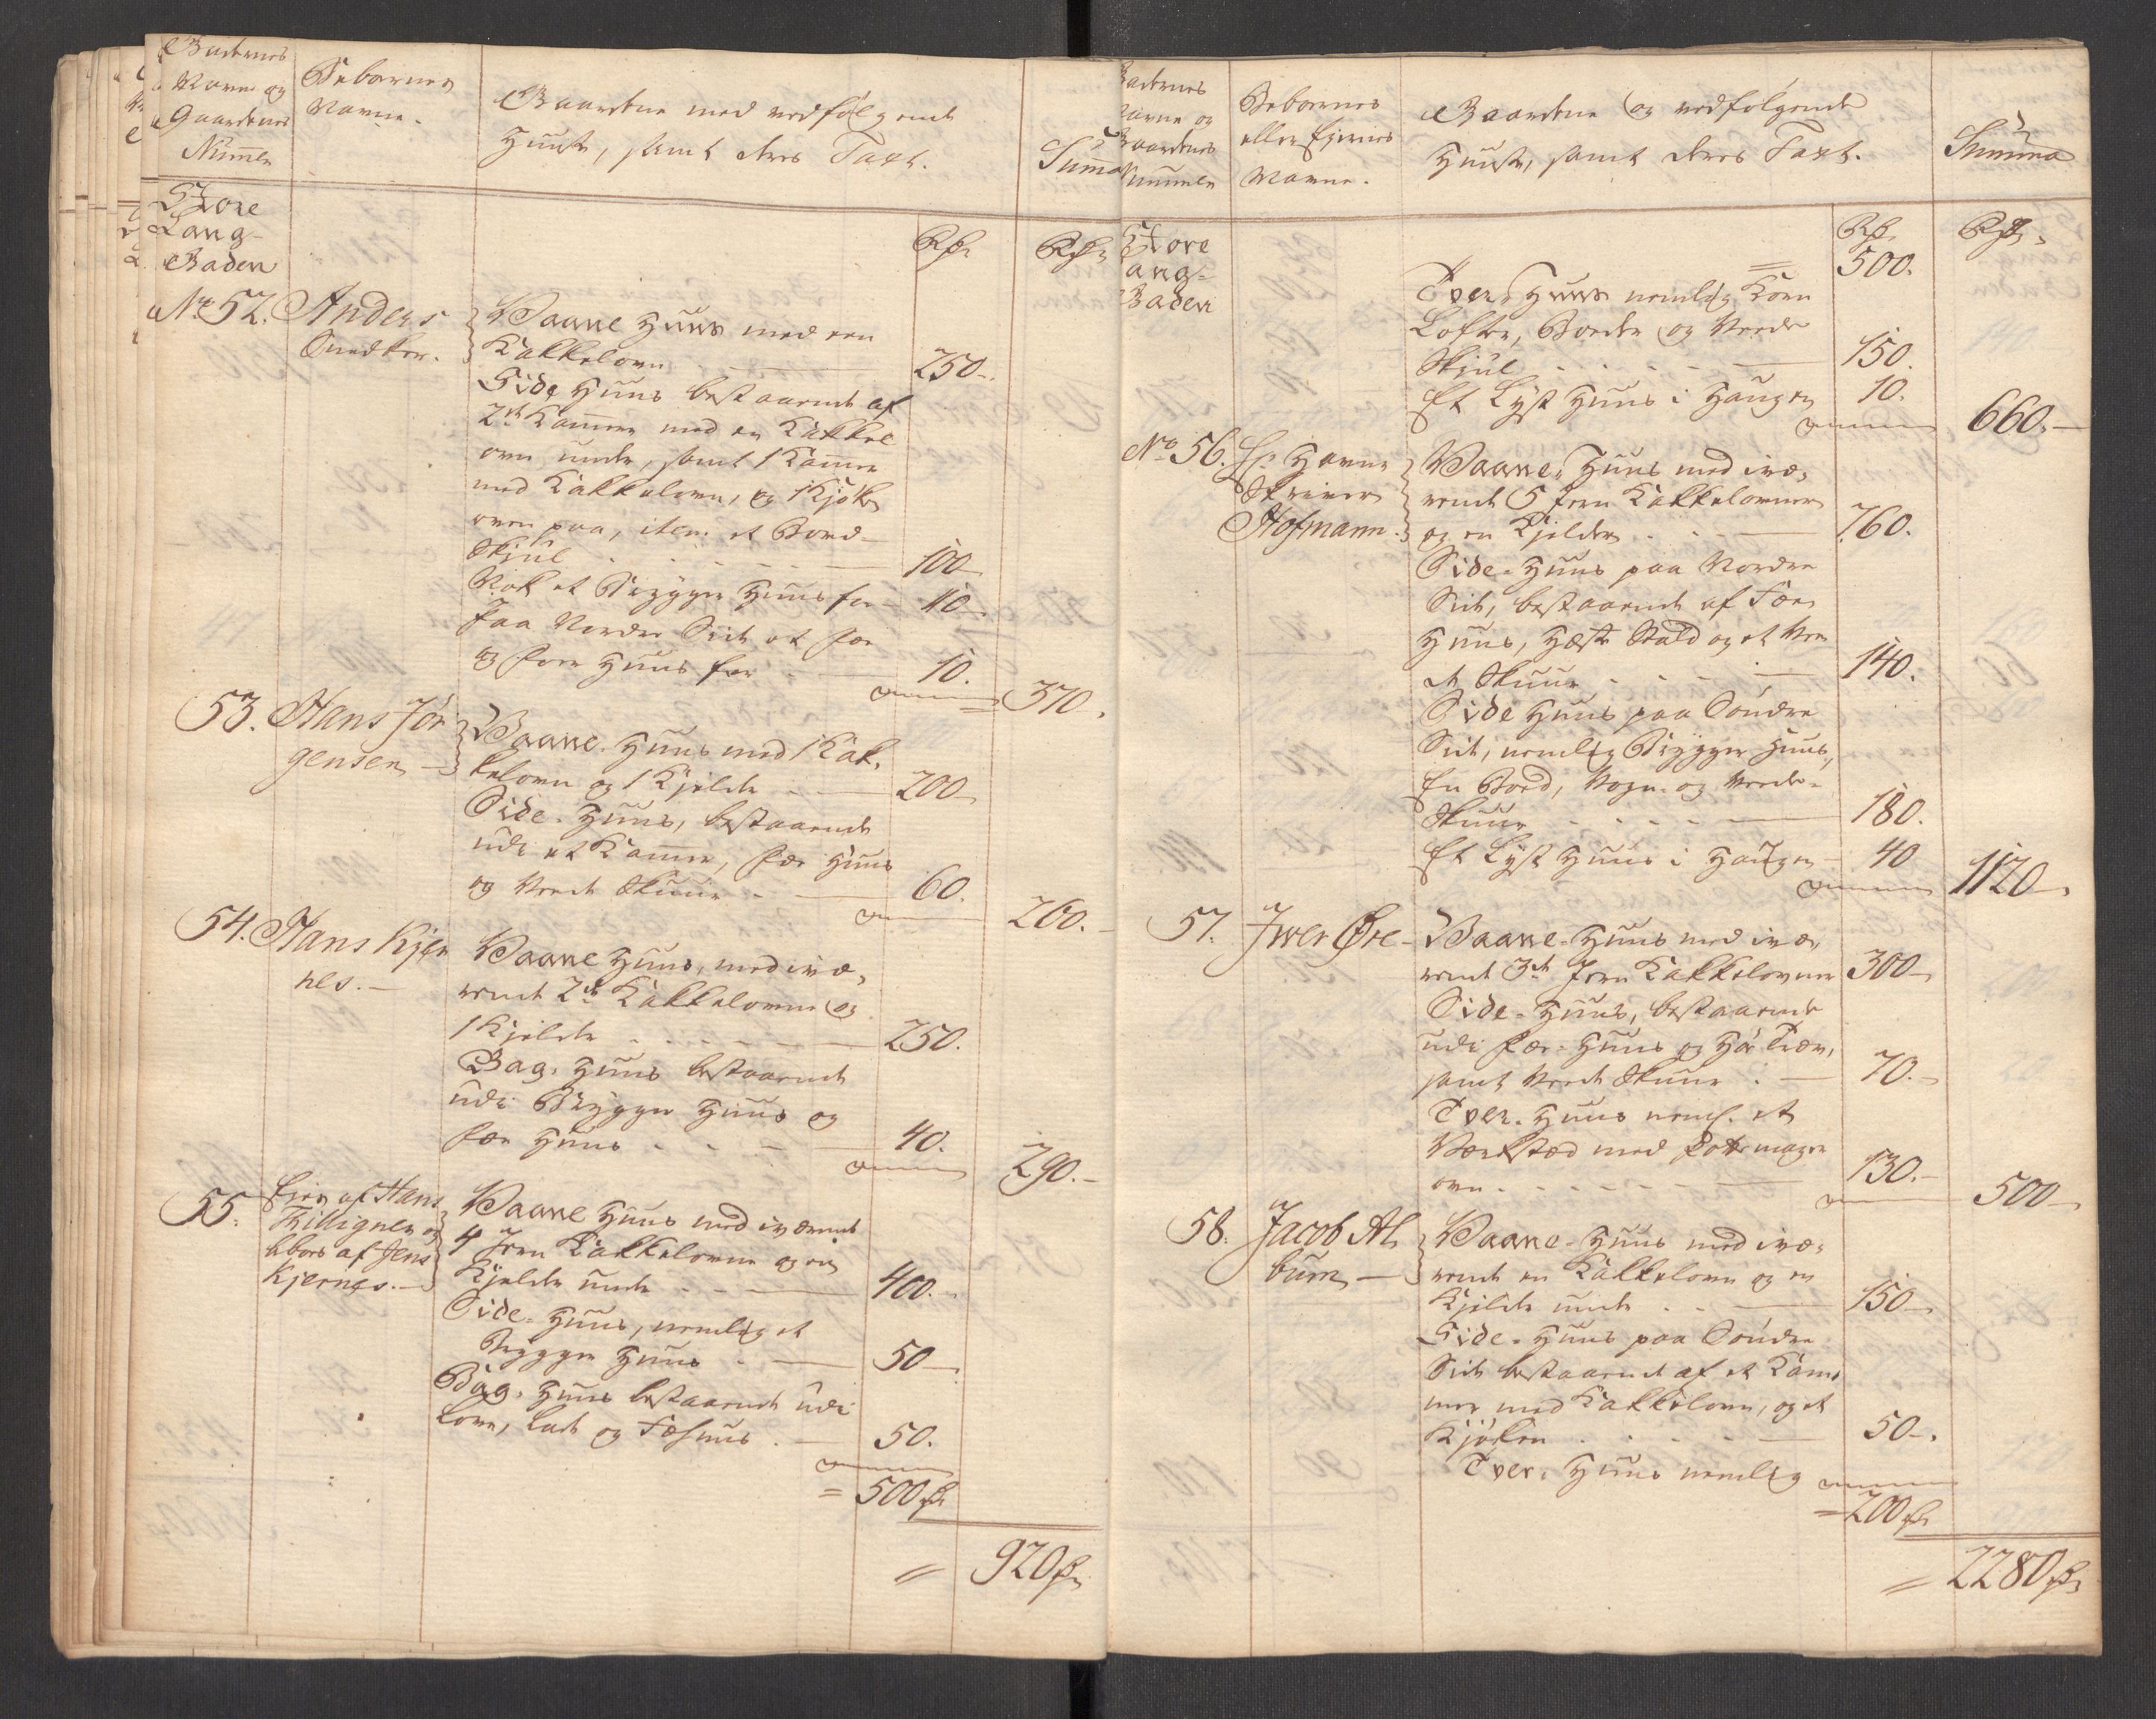 Gadernes
Navne og
Gaardenes
Nummer
Beboernes
Navne.
Gaardene med vedfølgende
Huuse, samt deres Taxt.
Summa
Store
Lang-
Gaden
Rdr
Rdr
No 52. Anders
Snedker.
Vaane Huus med een
Kakkelovn 250.
Side Huus bestaaende af
2de Kammer med en Kakkel
ovn under, samt 1 Kammer
med Kakkelovn, og 1 Kjøken
oven paa, item et Bord-
Skiul 100
Nok et Brygger Huus for 10
Paa Nordre Side et Fæe
og Foer Huus for 10.
370.
53. Hans Jör
gensen
Vaane Huus med 1 Kak-
kelovn og 1 Kjelder 200
Side-Huus, bestaaende
udi et Kammer, Fæe Huus
og Veede Skuur 60.
260.
54. Hans Kjer
nes.
Vaane Huus, med ivæ-
rende 2de Kakkelovne og
1 Kjelder 250.
Bag-Huus bestaaende
udi Brygger Huus og
Fæe Huus 40.
290.
55. Eies af Hans
Tillignen og
boes af Jens
Kjernes.
Vaane Huus med iværende
4 Jern Kakkelovne og en
Kjelder under 400.
Side-Huus, nemlig et
Brygger Huus 50
Bag-Huus bestaaende udi
Love, Lade og Fæhuus 50.
= 500 Rdr
= 920 Rdr
Gadernes
Navne og
Gaardenes
Nummer
Beboernes
eller Ejernes
Navne.
Gaardene og vedfølgende
Huuse, samt deres Taxt.
Summa
Store
Lang-
Gaden
Rdr
Rdr
= 500.
Tver-Huus nemlig Korn
Lofter, Border og Veede
Skjul 150.
Et Lyst Huus i Haugen 10.
660.
No 56. Hr Havne
Skriver
Hofmann.
Vaane-Huus med ivæ-
rende 5 Jern Kakkelovner
og en Kjelder 760.
Side-Huus paa Nordre
Side, bestaaende af Fæe
Huus, Hæste Stald og et Vee
de Skuur 140.
Side Huus paa Söndre
Side, nemlig Brygger Huus,
En Bord, Vogn- og Veede-
Skuur 180.
Et Lyst Huus i Haugen 40
1120.
57. Iver Øre
Vaane-Huus med ivæ-
rende 3de Jern Kakkelovne 300
Side-Huus, bestaaende
udi Fæe-Huus og Hör Tæv,
samt Veede Skuur 70.
Tver-Huus neml. et
Værksted med Pottemager
ovn 130.
500
58. Jacob Al
bum
Vaane-Huus med ivæ-
rende en Kakkelovn og en
Kjelder under 150
Side-Huus paa Söndre
Side bestaaende af et Kam-
mer med Kakkelovn, og et
Kjøken 50.
Tver-Huus nemlig
= 200 Rdr
= 2280 Rdr